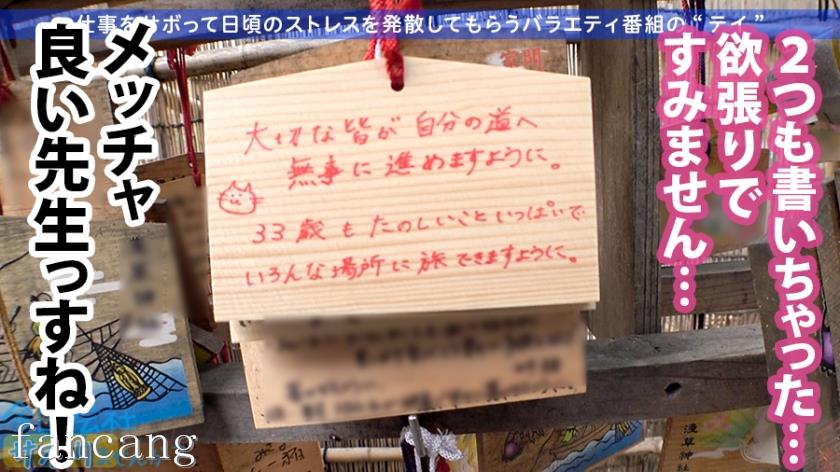 仕事をサボって日頃のストレスを発散してもらうバラエティ番組の“テイ”
2つも書いちゃった…
欲張りで
すみません…
大切な皆が自分の道へ
無事に進めますように。
33歳もたのしいこといっぱいで
いろんな場所に旅できますように。
メッチャ
良い先生っすね!
浅草神社
fancang